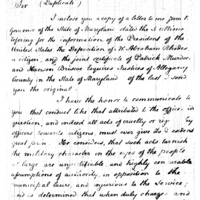 Sir (Duplicate)
I inclose you a copy of a letter to me from the
Governor of the State of Maryland dated the 1 ultimo
covering for the information of the President of the
United States the Deposition of Mr Abraham
a citizen, and the joint certificate of Daniel
and Hanson Briscoe Esquires Justices of Allegany
County in the State of Maryland of the last I send
you the original.
I have the honor to communicate to
you that conduct like that attributed to the officer in
question, and indeed all acts of cruelty or by
officers towards citizens must ever give the
great pain. He considers, that such acts tarnish
the military character in the eyes of the people
at large are unjustifiable and highly
assumptions of authority, in opposition to the
municipal laws, and injurious to the Service;
and is determined that when duly charge and